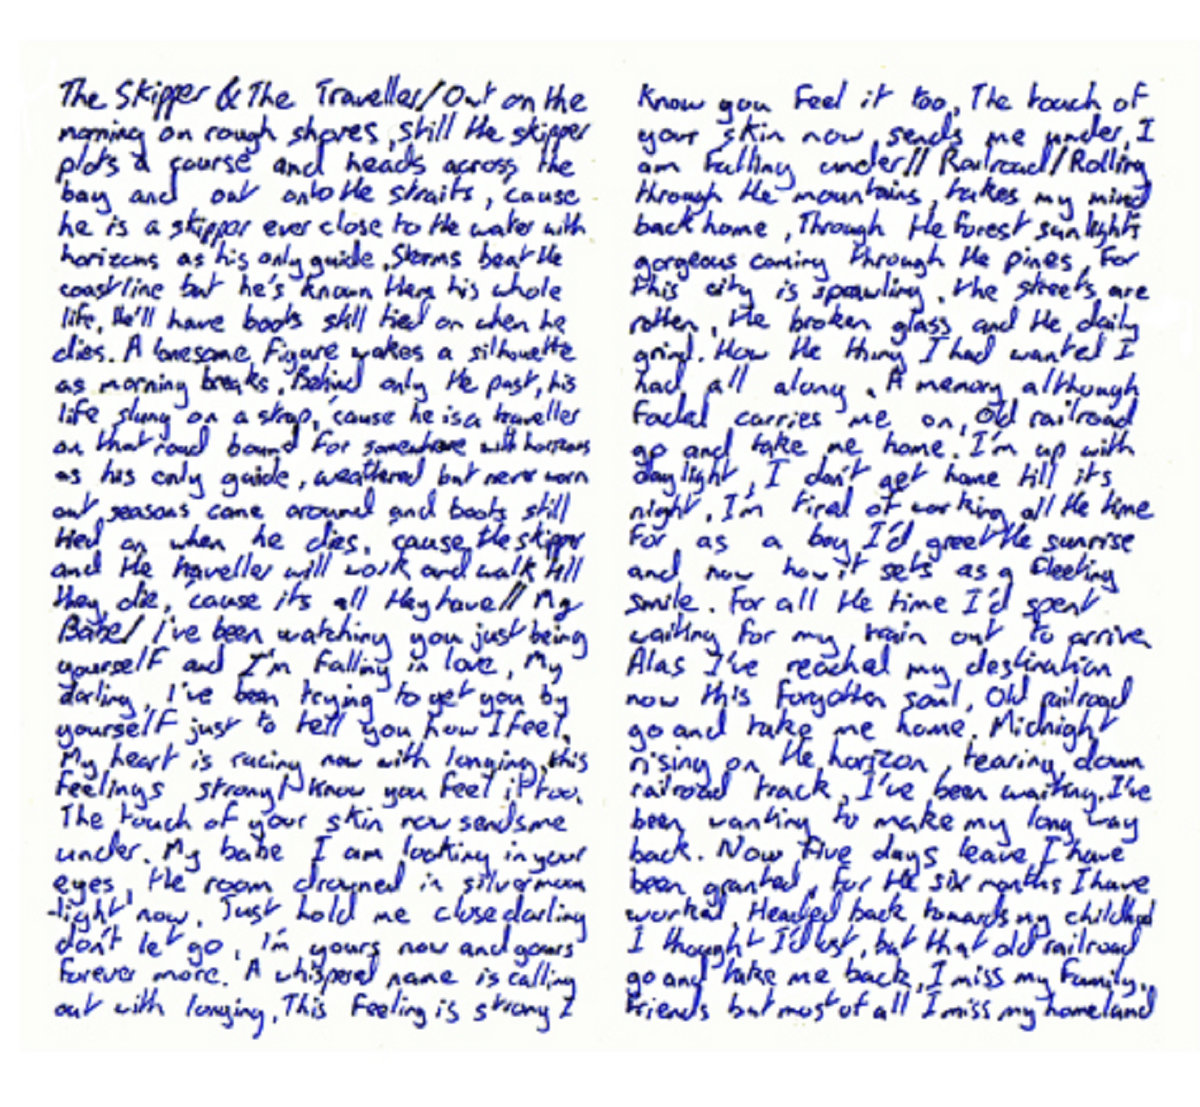 The Skipper & The Traveller/Out on the
morning on rough shores, still the skipper
plots a course and heads across the
bay and out onto the straits, 'cause
he is a skipper ever close to the water with
horizons as his only guide, Storms beat the
coastline but he's known them his whole
life, He'll have boots still tied on when he
dies. A lonesome figure makes a silhouette
as morning breaks. Behind only the past, his
life slung on a strap, 'cause he is a traveller
on that road bound for somewhere with horizons
as his only guide, weathered but never worn
out seasons come around and boots still
tied on when he dies, 'cause the skipper
and the traveller will work and walk till
they die, 'cause its all they have// My
Babe/ I've been watching you just being
yourself and I'm falling in love, My
darling, I've been trying to get you by
yourself just to tell you how I feel.
My heart is racing now with longing, this
feelings strong I know you feel it too.
The touch of your skin now sends me
under. My babe I am looking in your
eyes, the room drowned in silver moon
-light now. Just hold me close darling
don't let go, I'm yours now and yours
forever more. A whispered name is calling
out with longing, This feeling is strong I
know you feel it too, The touch of
your skin now sends me under, I
am falling under// Railroad/Rolling
through the mountains, takes my mind
back home, Through the forest sunlights
gorgeous coming through the pines, For
this city is sprawling, the streets are
rotten, the broken glass and the daily
grind. How the thing I had wanted I
had all along. A memory although
faded carries me on, Old railroad
go and take me home. I'm up with
daylight, I don't get home till its
night, I'm tired of working all the time
For as a boy I'd greet the sunrise
and now how it sets as a fleeting
smile. For all the time I'd spent
waiting for my train out to arrive
Alas I've reached my destination
now this forgotten soul, Old railroad
go and take me home. Midnight
rising on the horizon, tearing down
railroad track, I've been waiting, I've
been wanting to make my long way
back. Now five days leave I have
been granted, for the six months I have
worked, Headed back towards my childhood
I thought I'd lost, but that old railroad
go and take me back, I miss my family,
friends but most of all I miss my homeland